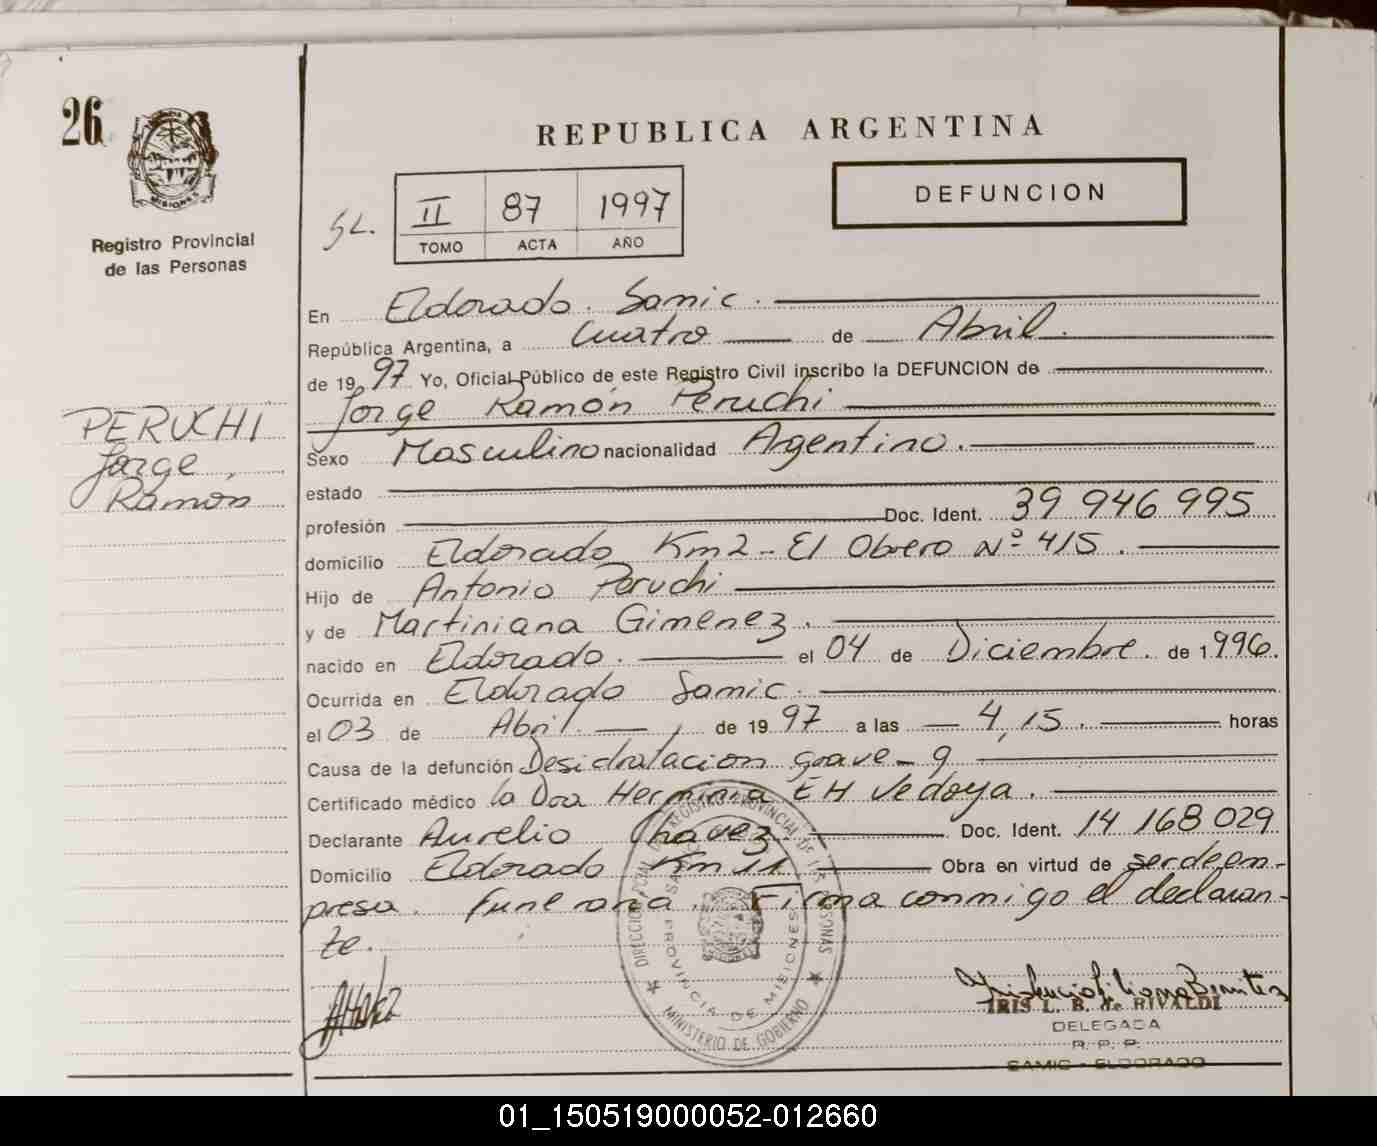 26
MISIONES
Registro Provincial
de las Personas
PERUCHI
Jorge
Ramón
REPUBLICA ARGENTINA
DEFUNCION
II 87 1997
TOMO ACTA AÑO
En Eldorado. Samic.
República Argentina, a Cuatro de Abril.
de 1997 Yo, Oficial Público de este Registro Civil inscribo la DEFUNCION de
Jorge Ramón Peruchi
Sexo Masculino nacionalidad Argentino.
estado
profesión Doc. Ident. 39 946 995
domicilio Eldorado Km2 - El Obrero Nº 415.
Hijo de Antonio Peruchi
y de Martiniana Gimenez.
nacido en Eldorado. el 04 de Diciembre. de 1.996.
Ocurrida en Eldorado Samic.
el 03 de Abril. de 1997 a las 4,15. horas
Causa de la defunción Desidratacion grave - 9
Certificado médico la Dra Herminia EH Vedoya.
Declarante Aurelio Chavez. Doc. Ident. 14 168 029
Domicilio Eldorado Km 11 Obra en virtud de ser de em-
presa. funeraria. Firma conmigo el declaran-
te.
DIRECCION PCIAL. DEL REGISTRO PROVINCIAL DE LAS PERSONAS
MINISTERIO DE GOBIERNO
PROVINCIA DE MISIONES
IRIS L. B. de RIVALDI
DELEGADA
R. P. P.
SAMIC - ELDORADO
01_150519000052-012660